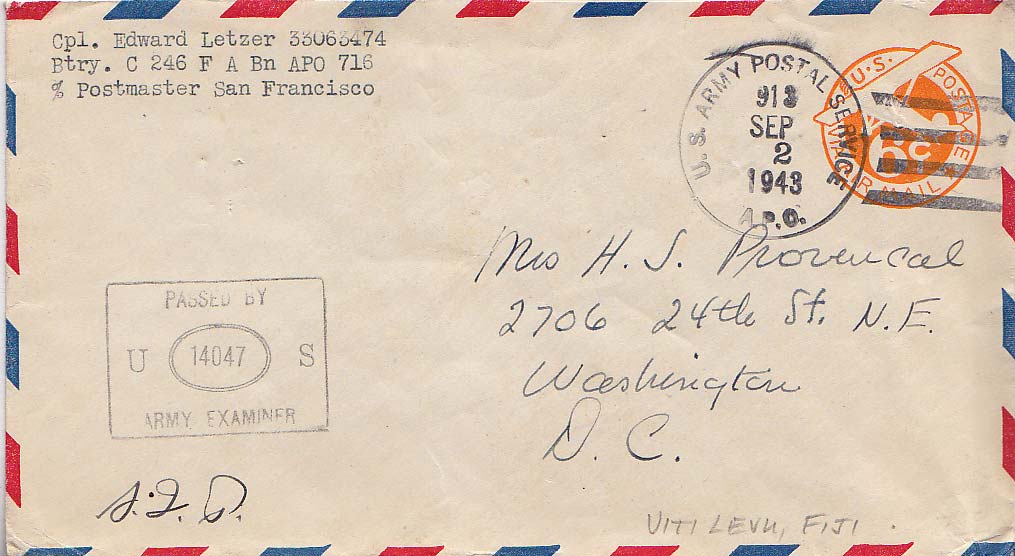 Cpl. Edward Letzer 33063474
Btry. C 246 F A Bn APO 716
% Postmaster San Francisco
U.S. ARMY POSTAL SERVICE
913
SEP
2
1943
A.P.O.
U.S. POSTAGE
6c
VIA AIR MAIL
Mrs H. J. Provencal
2706 24th St. N.E.
Washington
D. C.
PASSED BY
U 14047 S
ARMY EXAMINER
VITI LEVU, FIJI